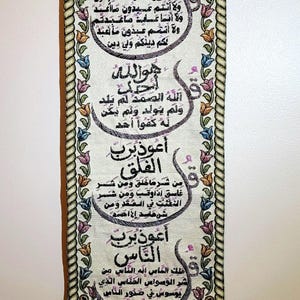 ولا أنتم عبدون ما أعبد
ولا أنا عابد ما عبدتم
ولا أنتم عبدون ما أعبد
لكم دينكم ولي دين
قل
هو الله
أحد
الله الصمد لم يلد
ولم يولد ولم يكن
له كفوا أحد
قل
أعوذ برب
الفلق
من شر ما خلق ومن شر
غاسق إذا وقب ومن شر
النفثت في العقد ومن
شر حاسد إذا حسد
قل
أعوذ برب
الناس
ملك الناس إله الناس من
شر الوسواس الخناس الذي
يوسوس في صدور الناس